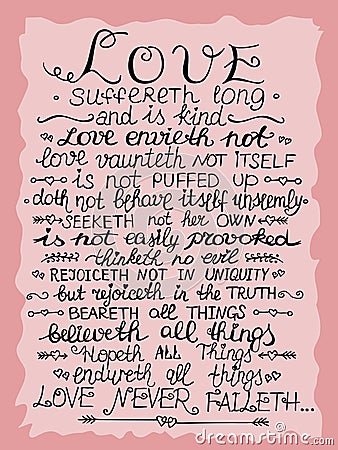 LOVE
SUFFERETH long
and is kind
Love envieth not
love vaunteth NOT ITSELF
is not PUFFED UP
doth not behave itself unseemly
SEEKETH not her OWN
is not easily provoked
thinketh no evil
REJOICETH NOT IN UNIQUITY
but rejoiceth in the TRUTH
BEARETH all THINGS
believeth all things
Hopeth ALL Things
endureth all things
LOVE NEVER FAILETH...